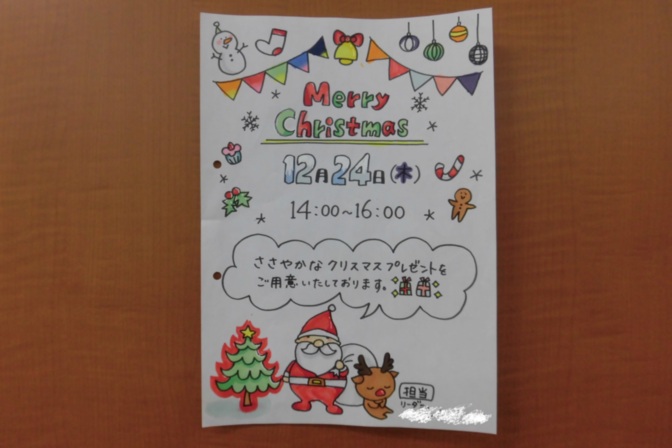 Merry
Christmas
12月24日(木)
14:00~16:00
ささやかなクリスマスプレゼントを
ご用意いたしております。
担当
リーダー